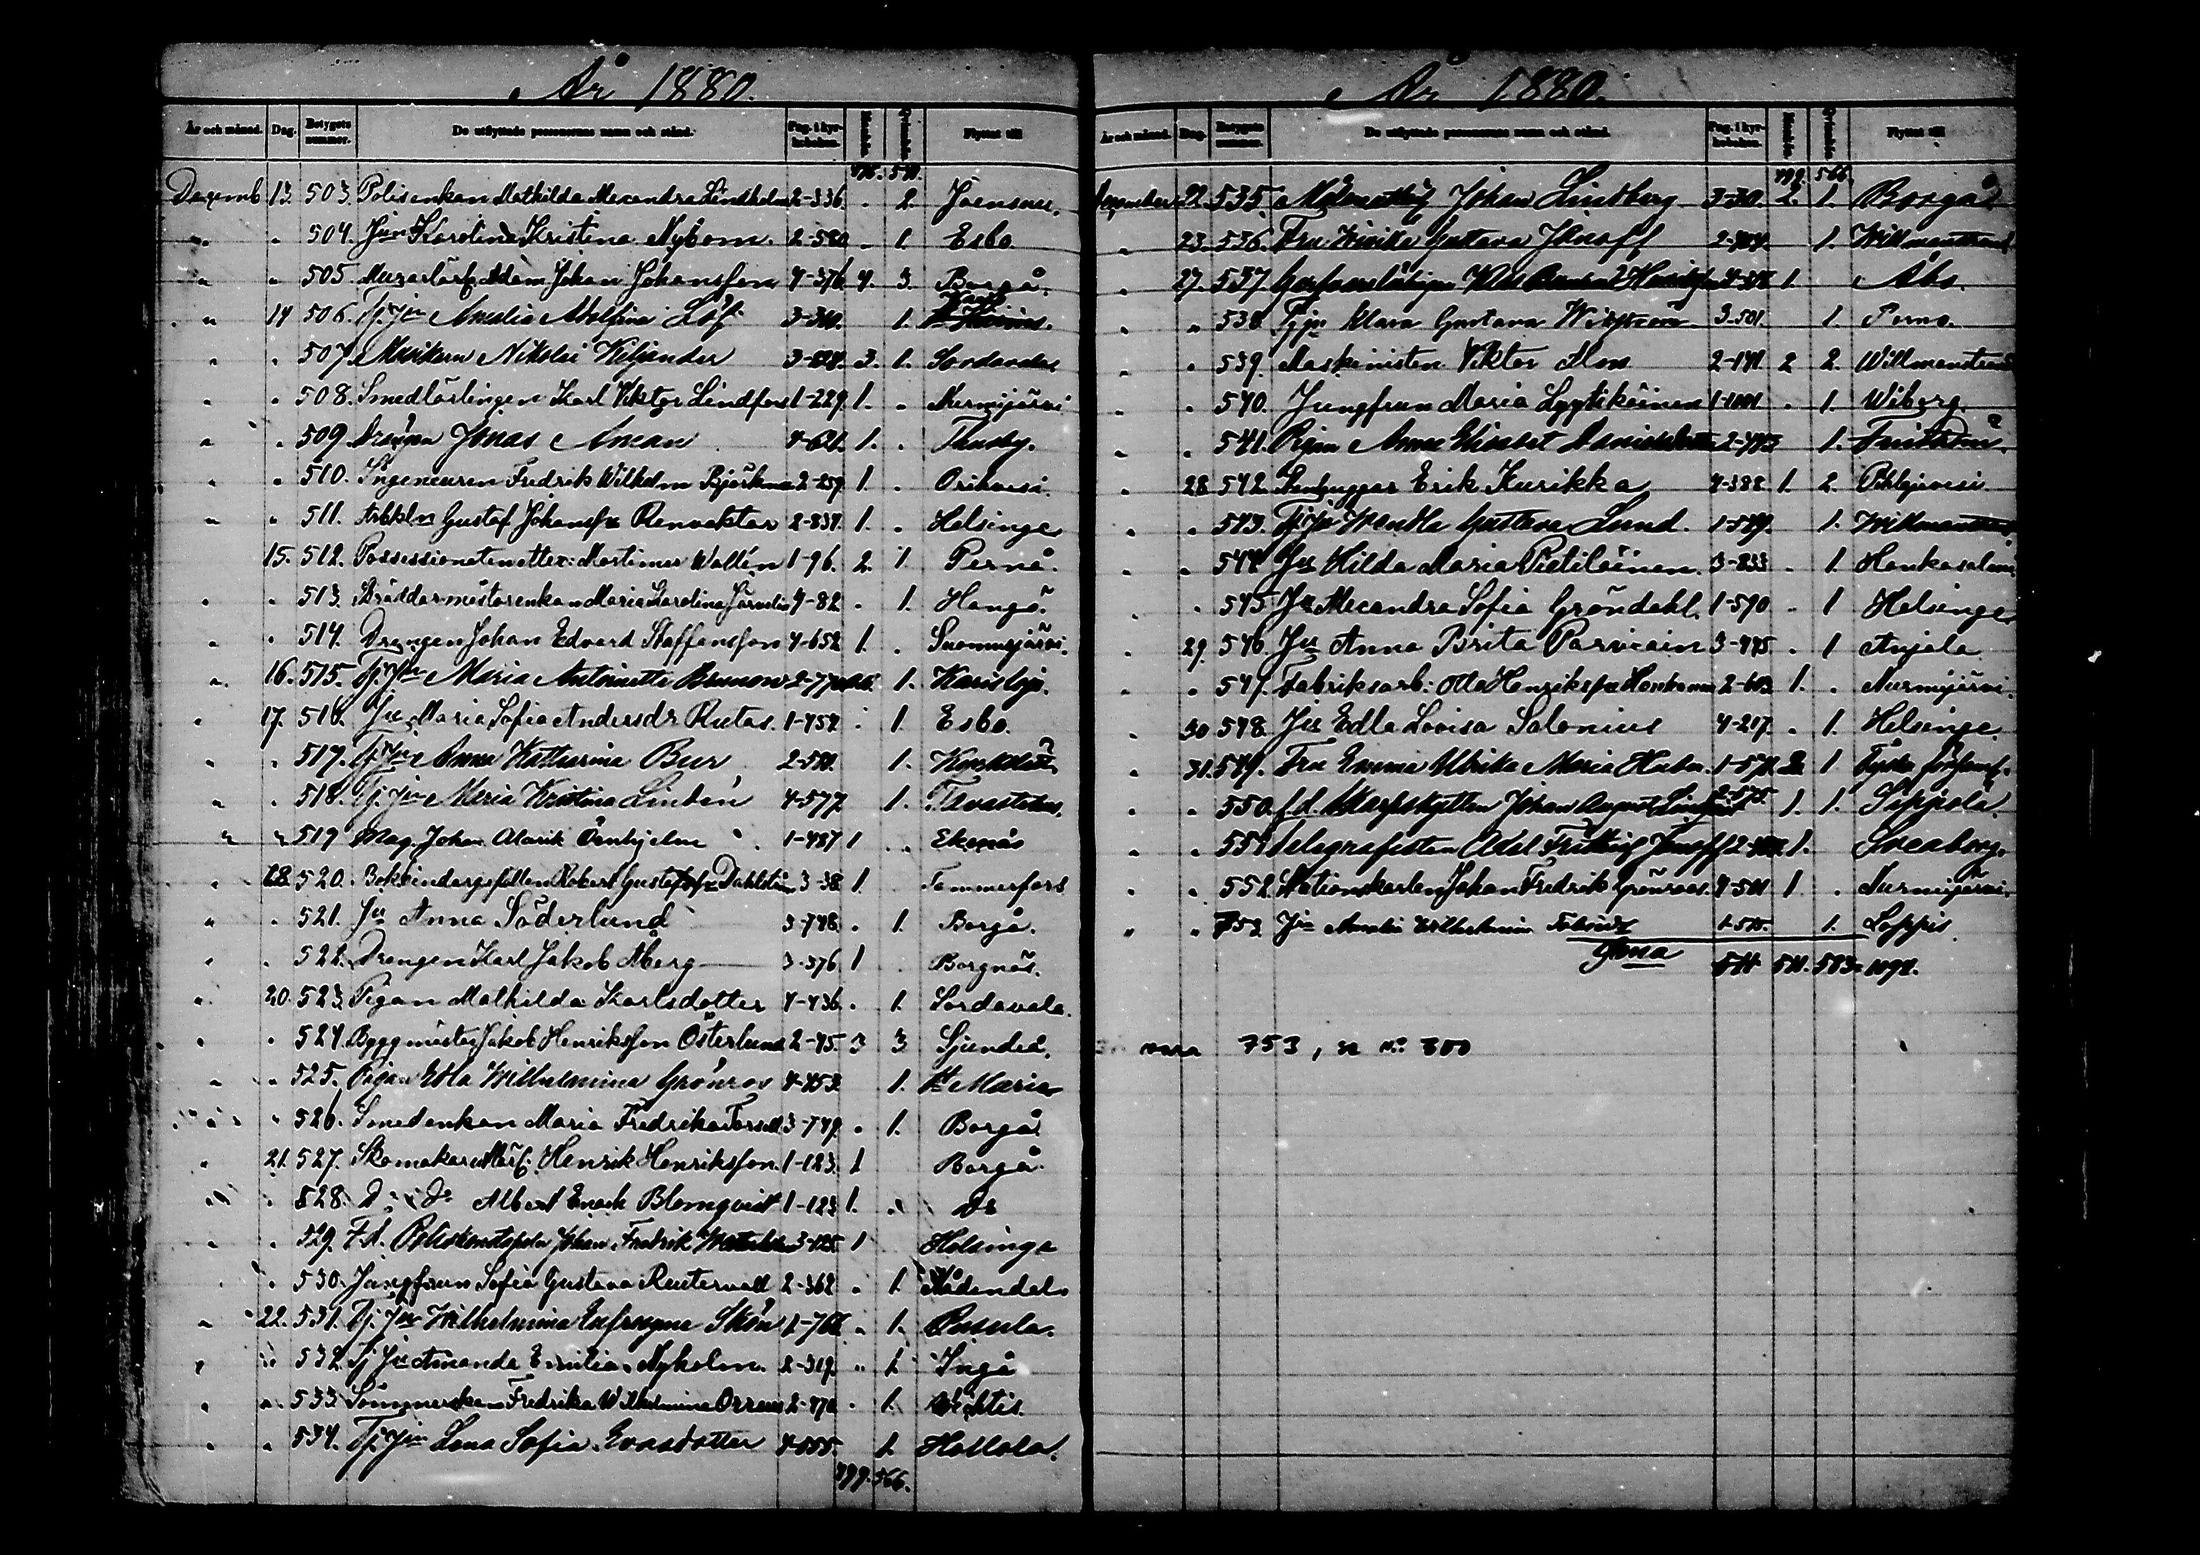 År 1880.
År och månad. Dag. Betygets nummer. De utflyttade personernas namn och stånd. Pag. i kyrkoboken. Mankön. Qvinkön. Flyttat till
475. 511.
Decemb. 13. 503. Polisenkan Mathilda Alexandra Lindholm 2-336. . 2. Joensuu.
" " 504. Jungfr Karolina Kristina Nybom. 2-580 . 1. Esbo
" " 505. Murarlärl. Adam Johan Johansson 4-376 4. 3. Borgå.
" 14 506. Tj. Jgn Amalia Adolfina Löf 3-310. 1.
" " 507. Musikern Nikolai Weljander 3-128. 3. 1. Sordavala
" " 508. Smedlärlingen Karl Viktor Lindfors 1-229. 1. . Nurmijärvi
" " 509. Drängen Jonas Aman 4-621. 1. . Thusby.
" " 510. Ingeneuren Fredrik Wilhelm Björkman 2-259. 1. . Orihvesi.
" " 511. Arbkln Gustaf Johansson Renvaktar 2-834. 1. . Helsinge
15. 512. Possessionaten Mortimer Wallén 1-96. 2. 1. Pernå.
" " 513. Skräddarmästarenkan Maria Karolina Järvelin 4-82 . 1. Hangö.
" " 514. Drengen Johan Edvard Staffansson 4-652 1. . Suommijärvi.
" 16. 515. Tj. Jgn Maria Antoinette Brunow 2-770 1. Karislojo.
" 17. 516. Jgn Maria Sofia Andersdr Rutas. 1-452 . 1. Esbo.
" " 517. Tj. Jgn Anna Katharina Bur 2-511. 1. Kyrkslätt
" " 518. Tj. Jgn Maria Kristina Lindén 4-577. 1. Tavastehus.
" " 519 Mag. Johan Alarik Örnhjelm 1-487 1 . Ekenäs
" 18. 520. Bokbindargesällen Robert Gustafsson Dahlström 3-38. 1. Tammerfors
" " 521. Jgn Anna Söderlund 3-748. . 1. Borgå.
" " 522. Drengen Karl Jakob Åberg 3-376 1 Borgnäs.
" 20. 523. Pigan Mathilda Karlsdotter 4-436. . 1. Sordavala.
" " 524. Byggmäster Jakob Henriksson Österlund 2-45. 3 3 Sjundeå.
" " 525. Pigan Edla Wilhelmina Grönros 4-453 1. St Marie
" " 526. Smedenkan Maria Fredrika Forsell 3-749. . 1. Borgå
" 21. 527. Skomakarelärl. Henrik Henriksson 1-123. 1 Borgå.
" " 528. Do Do Albert Enoch Blomqvist 1-123 1. . Do
" " 529. F.d. Poliskonstapeln Johan Fredrik 3-125. 1 Helsinge
" " 530. Jungfrun Sofia Gustava Reutervall 2-362 . 1. Nådendal
" 22. 531. Tj. Jgn Wilhelmina Eufrosyne Skön 2-766. . 1. Pusula.
" " 532. Tj Jgn Amanda Emilia Nyholm. 2-319. " 1. Ingå
" " 533. Sömmerskan Fredrika Wilhelmina Orreus 2-470 . 1. Wichtis.
" " 534. Tj. Jgn Lena Sofia Evasdotter 4-555. 1. Hollola.
499. 566.
År 1880.
År och månad. Dag. Betygets nummer. De utflyttade personernas namn och stånd. Pag. i kyrkoboken. Mankön. Qvinkön. Flyttat till
499. 566.
December 22. 535. Johan Lindberg 3-30. 2. 1. Borgå
" 23. 536. Fru Wivika Gustava Jänoff 1. Willmanstrand
" 27. 537. 1. Åbo.
" " 538. Tj. jgn Klara Gustava 3-501. 1. Perno.
" " 539. Maskinisten Viktor 2-141 2 2. Willmanstrand
" " 540. Jungfrun Maria Lyytikäinen . 1. Wiborg.
" " 541. Pigan Anna Elisabet Danielsdotter 2-743 1.
" 28. 542. Stenhuggar Erik Kurikka 4-388 1. 2. Pihlajavesi
" " 543. Tj. jgn Wendla Gustava Lund. 1-549. 1. Willmanstrand
" " 544. Jgn Hilda Maria Pietiläinen. 3-833 . 1 Hankasalmi
" " 545. Jgn Alexandra Sofia Gröndahl. 1-590 . 1 Helsinge
" 29. 546. Jgn Anna Brita Parviain 3-445 . 1 Anjala
" " 547. Fabriksarb: Otto Henriksson Honkanen 2-603 1. . Nurmijärvi.
" 30 548. Jgn Edla Lovisa Salonius 4-217. . 1. Helsinge.
" 31. 549. Fru Emma Ulrika Maria Huber 1-571. 2. 1 Tyska församl.
" " 550. f.d. Skarpskytten Johan August 2-575 1. 1. Sippola.
" " 551. Telegrafisten Axel Fredrik Jänoff 1. Sveaborg.
" " 552. Stationskarlen Johan Fredrik Grönroos 4-501 1 . Nurmijärvi.
" " 553. Jgn Amalia Wilhelmina 1-511. 1. Loppis.
Summa 511. 583. 1094.
753, n No 300